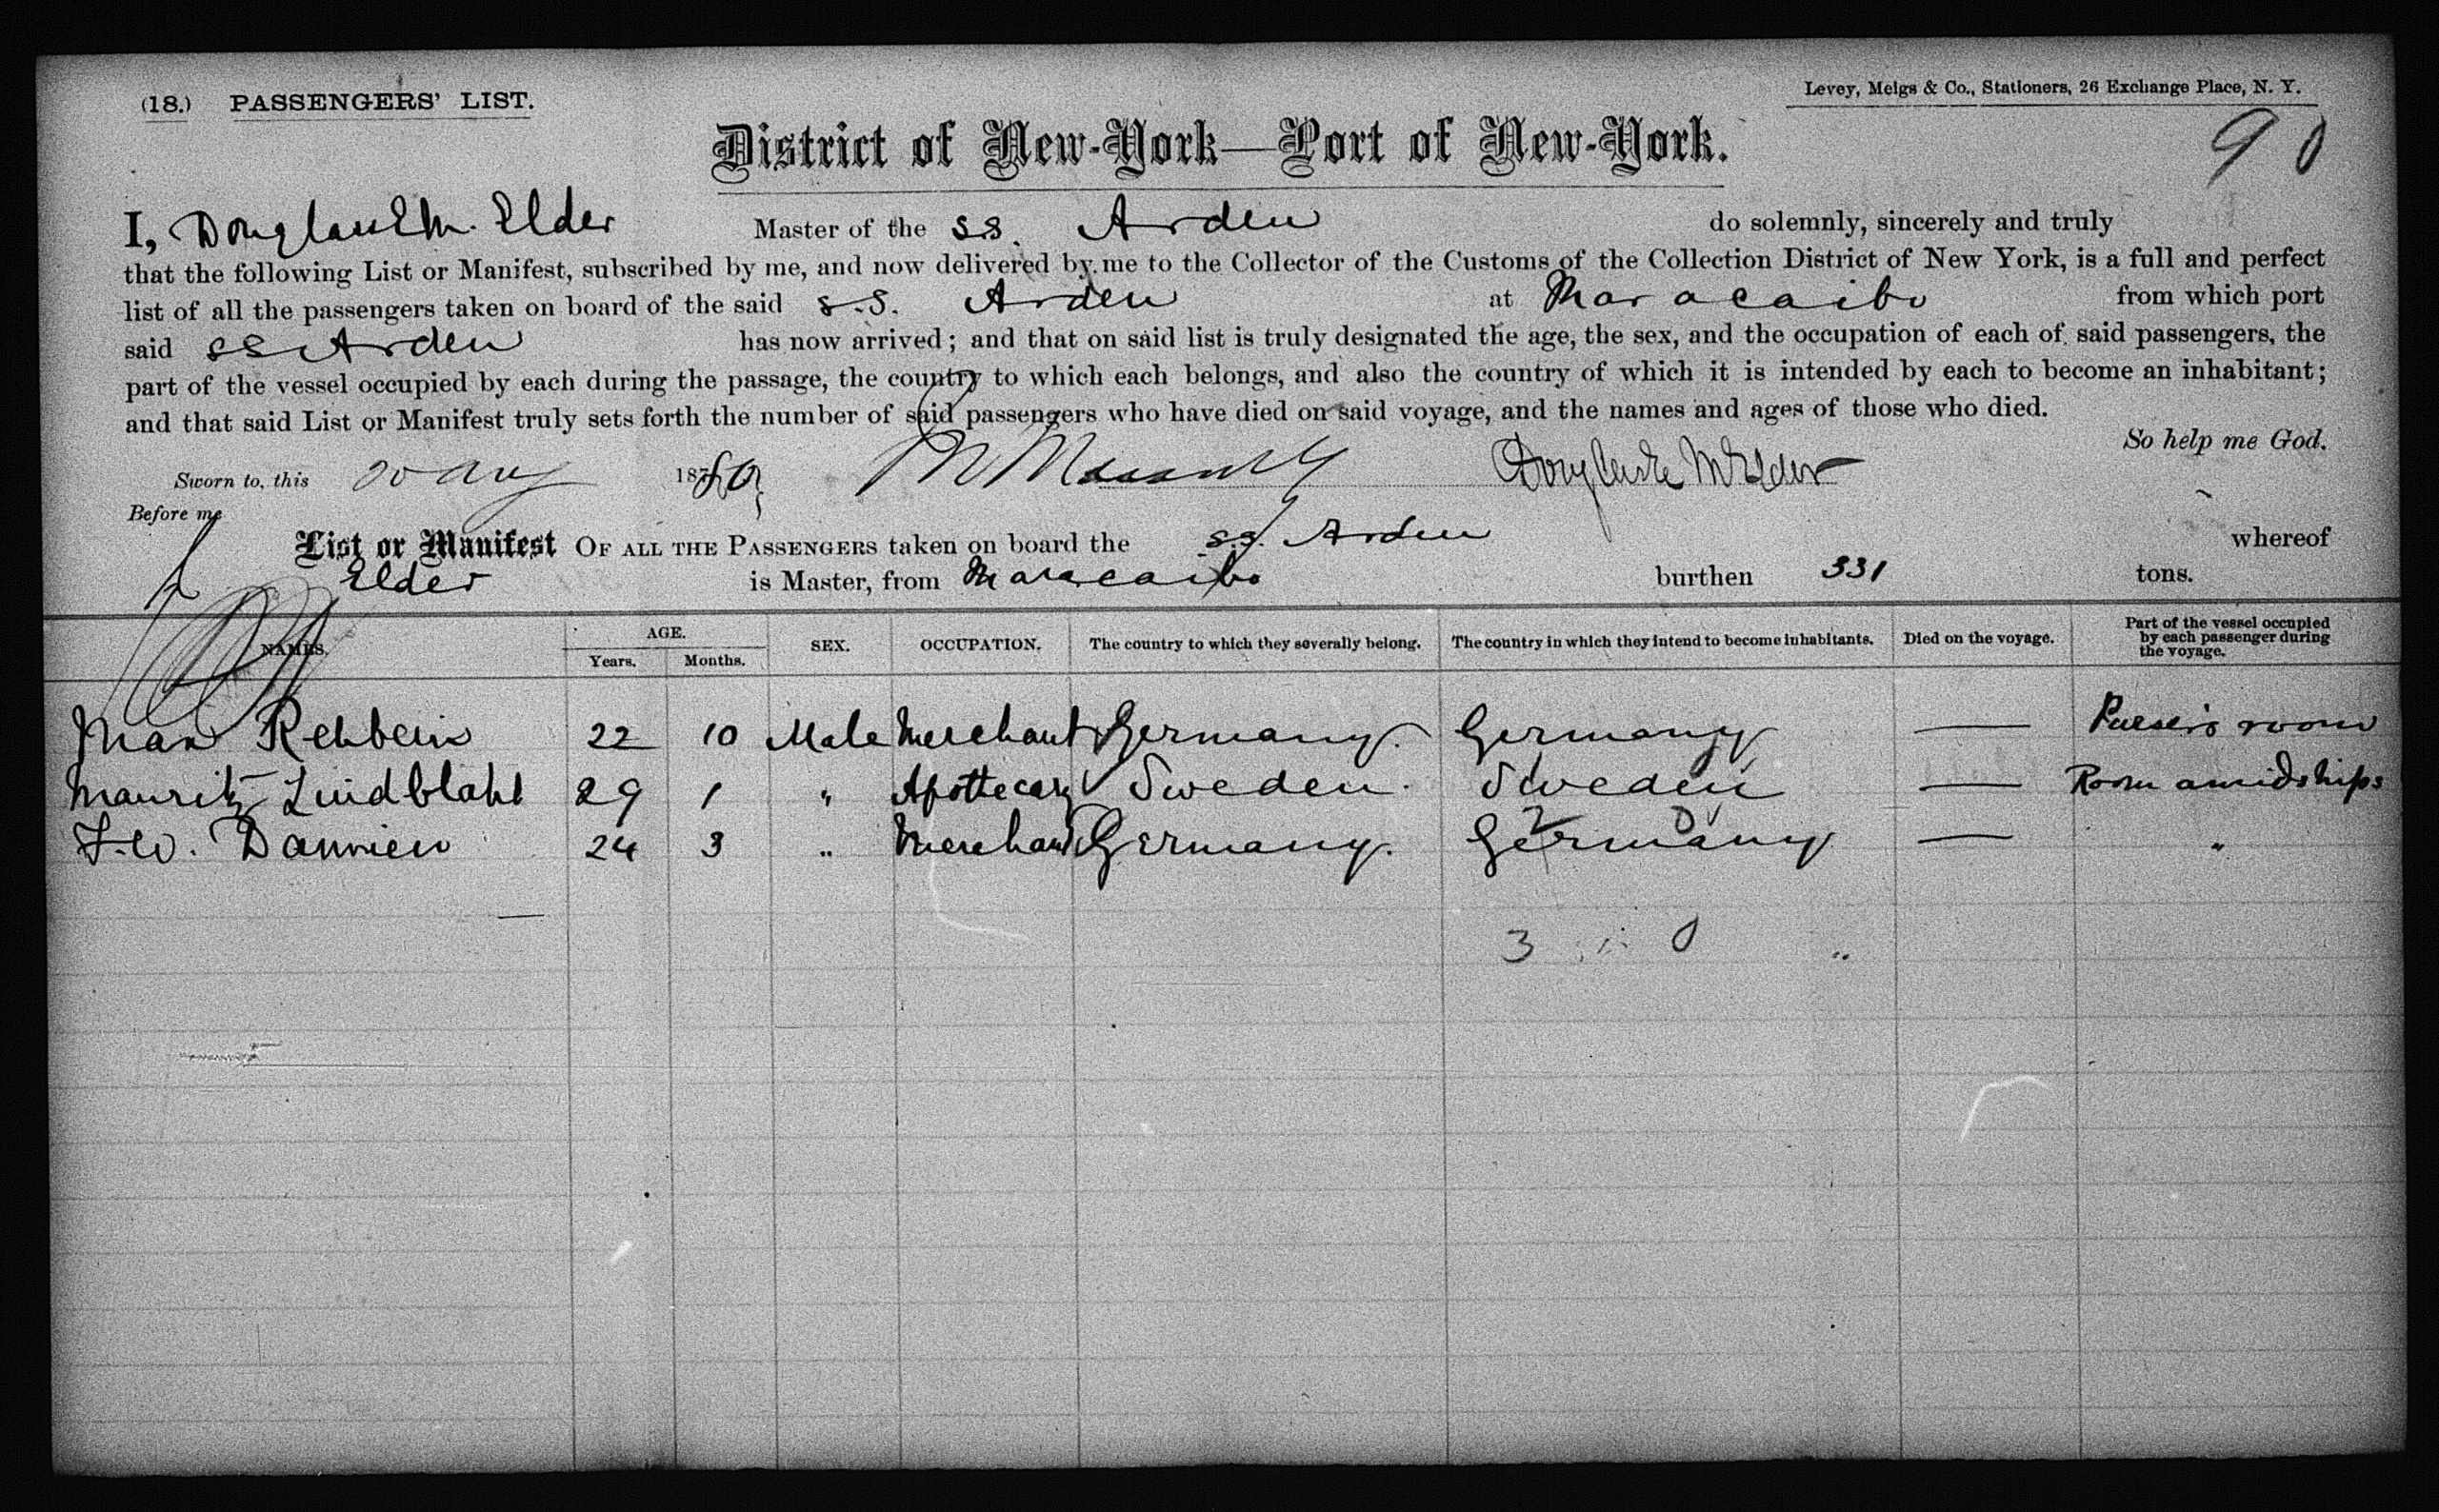 (18.) PASSENGERS' LIST.
Levey, Meigs & Co., Stationers, 26 Exchange Place, N. Y.
90
District of New-York—Port of New-York.
I, Douglas M. Elder Master of the S.S. Arden do solemnly, sincerely and truly
that the following List or Manifest, subscribed by me, and now delivered by me to the Collector of the Customs of the Collection District of New York, is a full and perfect
list of all the passengers taken on board of the said S.S. Arden at Maracaibo from which port
said SS Arden has now arrived; and that on said list is truly designated the age, the sex, and the occupation of each of said passengers, the
part of the vessel occupied by each during the passage, the country to which each belongs, and also the country of which it is intended by each to become an inhabitant;
and that said List or Manifest truly sets forth the number of said passengers who have died on said voyage, and the names and ages of those who died.
So help me God.
Sworn to, this 20 Aug 1880 Elder
Before me
List or Manifest OF ALL THE PASSENGERS taken on board the S.S. Arden whereof
Elder is Master, from Maracaibo burthen 331 tons.
NAMES. AGE. Years. Months. SEX. OCCUPATION. The country to which they severally belong. The country in which they intend to become inhabitants. Died on the voyage. Part of the vessel occupied by each passenger during the voyage.
Max Rehbein 22 10 Male Merchant Germany. Germany — Purser's room
Mauritz Lindblahd 29 1 " Apothecary Sweden. Sweden — Room amidships
F.W. 24 3 " Merchant Germany. Germany — "
3 0